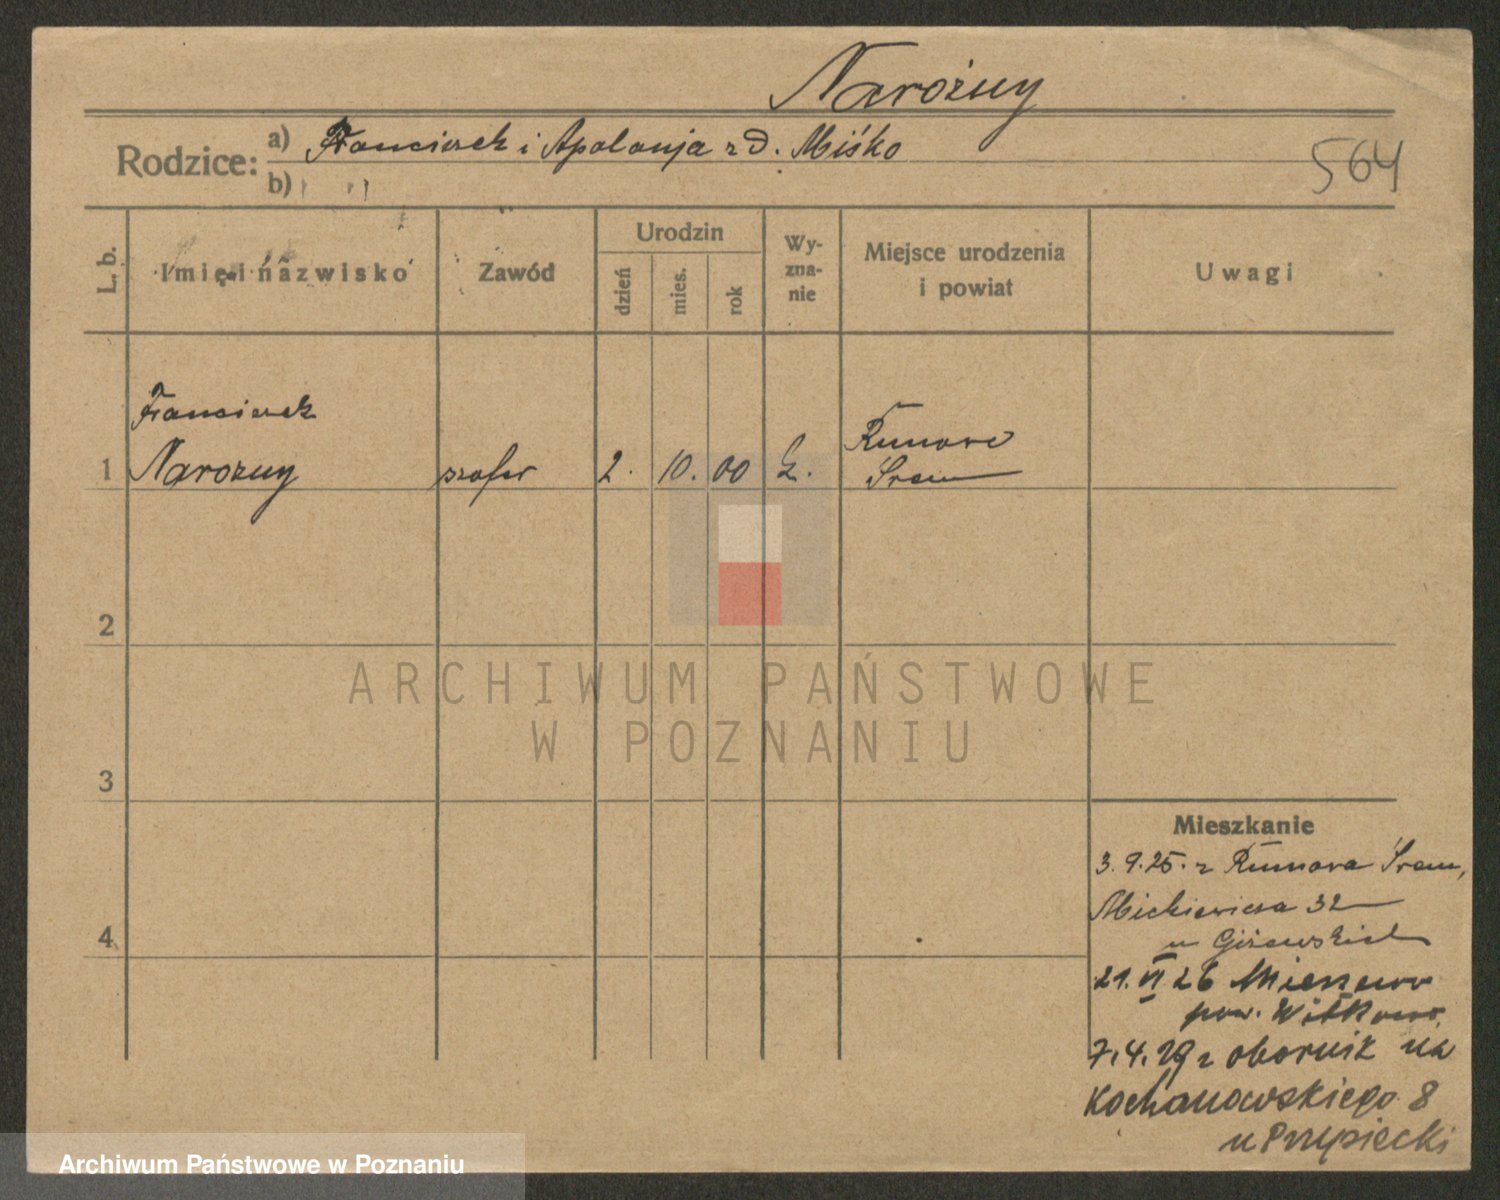 Narożny
Rodzice:
a) Franciszek i Apolonja z D. Miśko
b)
564
L. b.
Imię i nazwisko
Zawód
Urodzin
dzień
mies.
rok
Wy-
zna-
nie
Miejsce urodzenia
i powiat
Uwagi
Franciszek
1 Narożny szofer 2. 10. 00 Runowo
Śrem
2
3
4
ARCHIWUM PAŃSTWOWE
W POZNANIU
Mieszkanie
3.9.25. z Runowa Śrem,
Mickiewicza 32
u
21. VI 26
pow. Witkowo
7.4.29 z Obornik na
Kochanowskiego 8
u Przepiecki
Archiwum Państwowe w Poznaniu